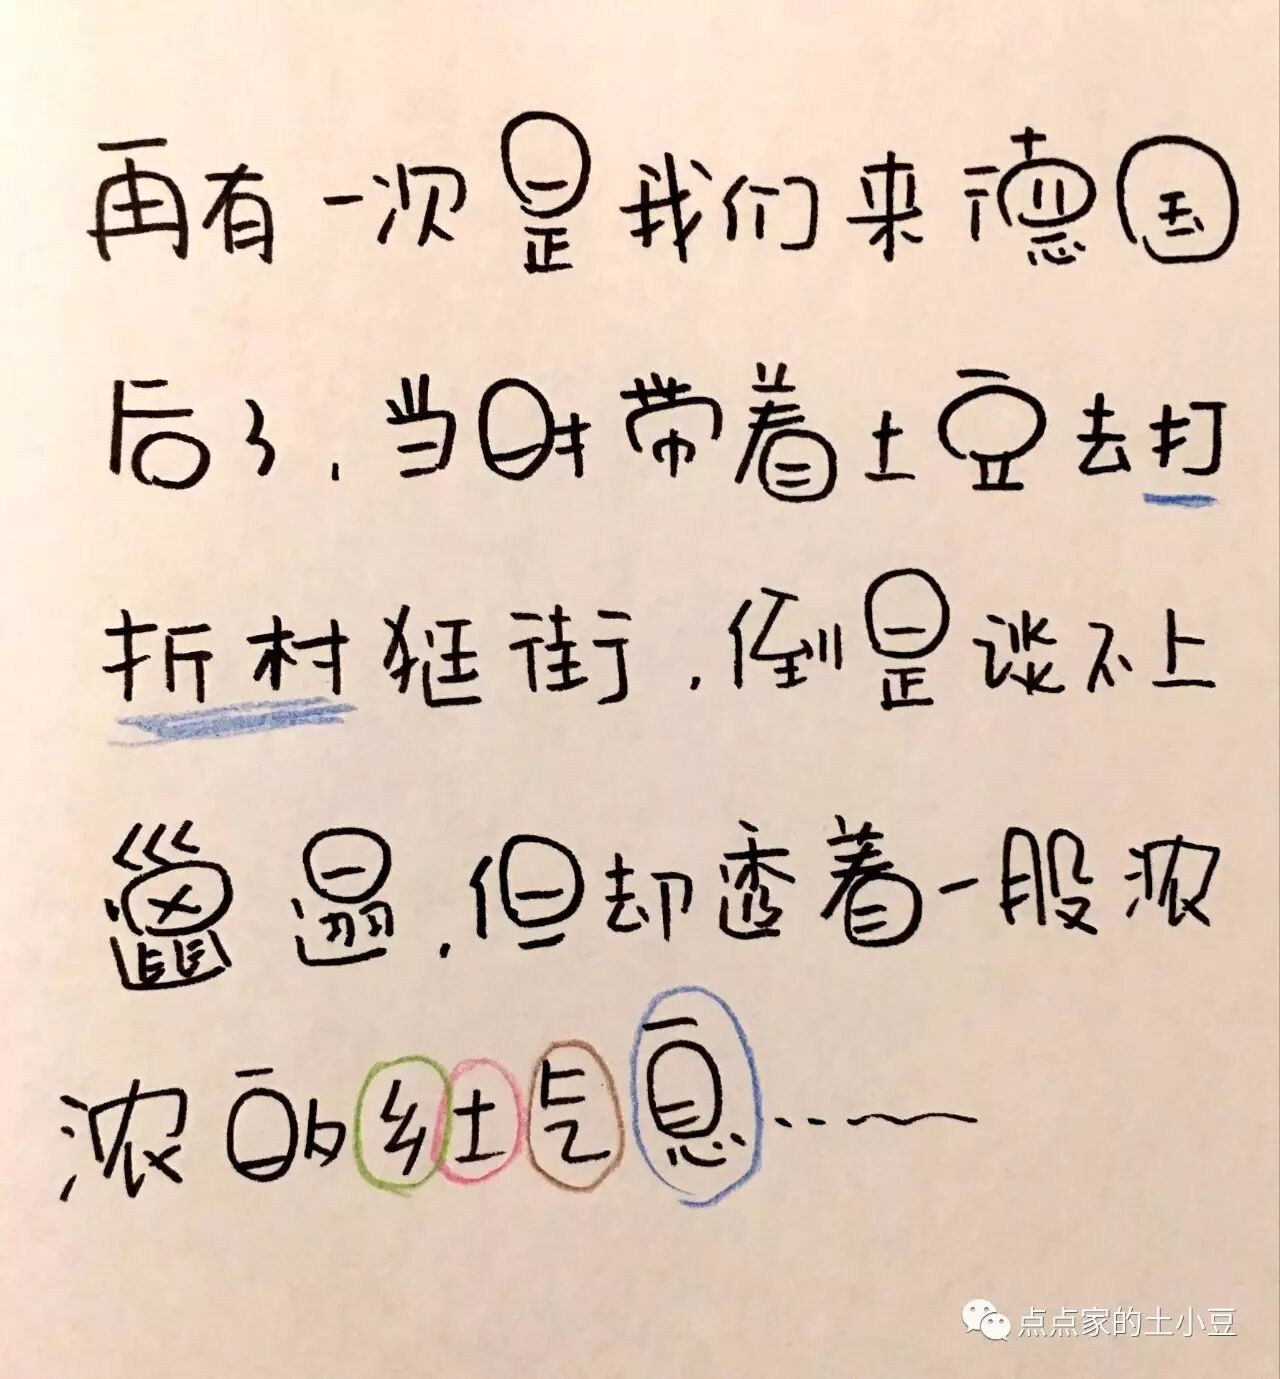 再有一次是我们来德国
后了,当时带着土豆去打
折村逛街,倒是谈不上
邋遢,但却透着一股浓
浓的乡土气息……
点点家的土小豆